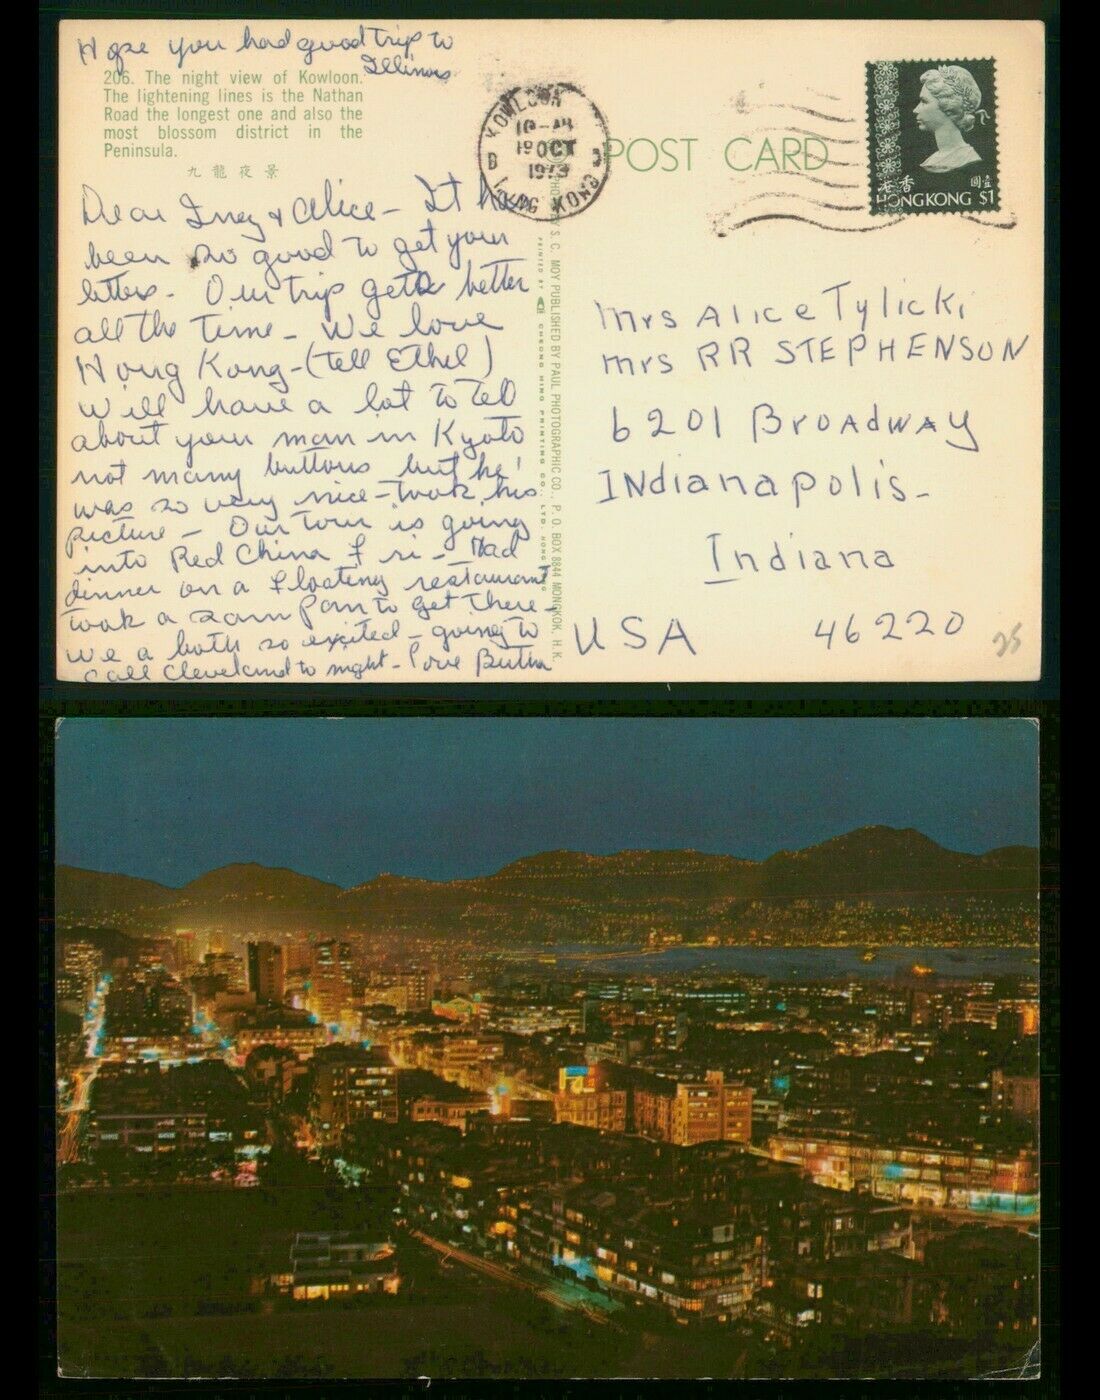 Hope you had good trip to
Illinois
206. The night view of Kowloon.
The lightening lines is the Nathan
Road the longest one and also the
most blossom district in the
Peninsula.
九龍夜景
Dear Inez & Alice - It has
been so good to get your
letters. Our trip gets better
all the time - We love
Hong Kong - (tell Ethel)
Will have a lot to tell
about your man in Kyoto
not many buttons but he
was so very nice - took his
picture - Our tour is going
into Red China Fri - Had
dinner on a floating restaurant
took a sam pam to get there -
we a both so excited - going to
call Cleveland to night - Love
KOWLOON
19 OCT
1973
HONG KONG
B
POST CARD
香港
壹圓
HONGKONG $1
S.C. MOY PUBLISHED BY PAUL PHOTOGRAPHIC CO., P. O. BOX 8844 MONGKOK, H.K.
PRINTED BY CHEONG MING PRINTING CO., LTD. HONG
Mrs Alice Tylicki
Mrs RR STEPHENSON
6201 BROADWAY
INdianapolis -
Indiana
USA 46220
25